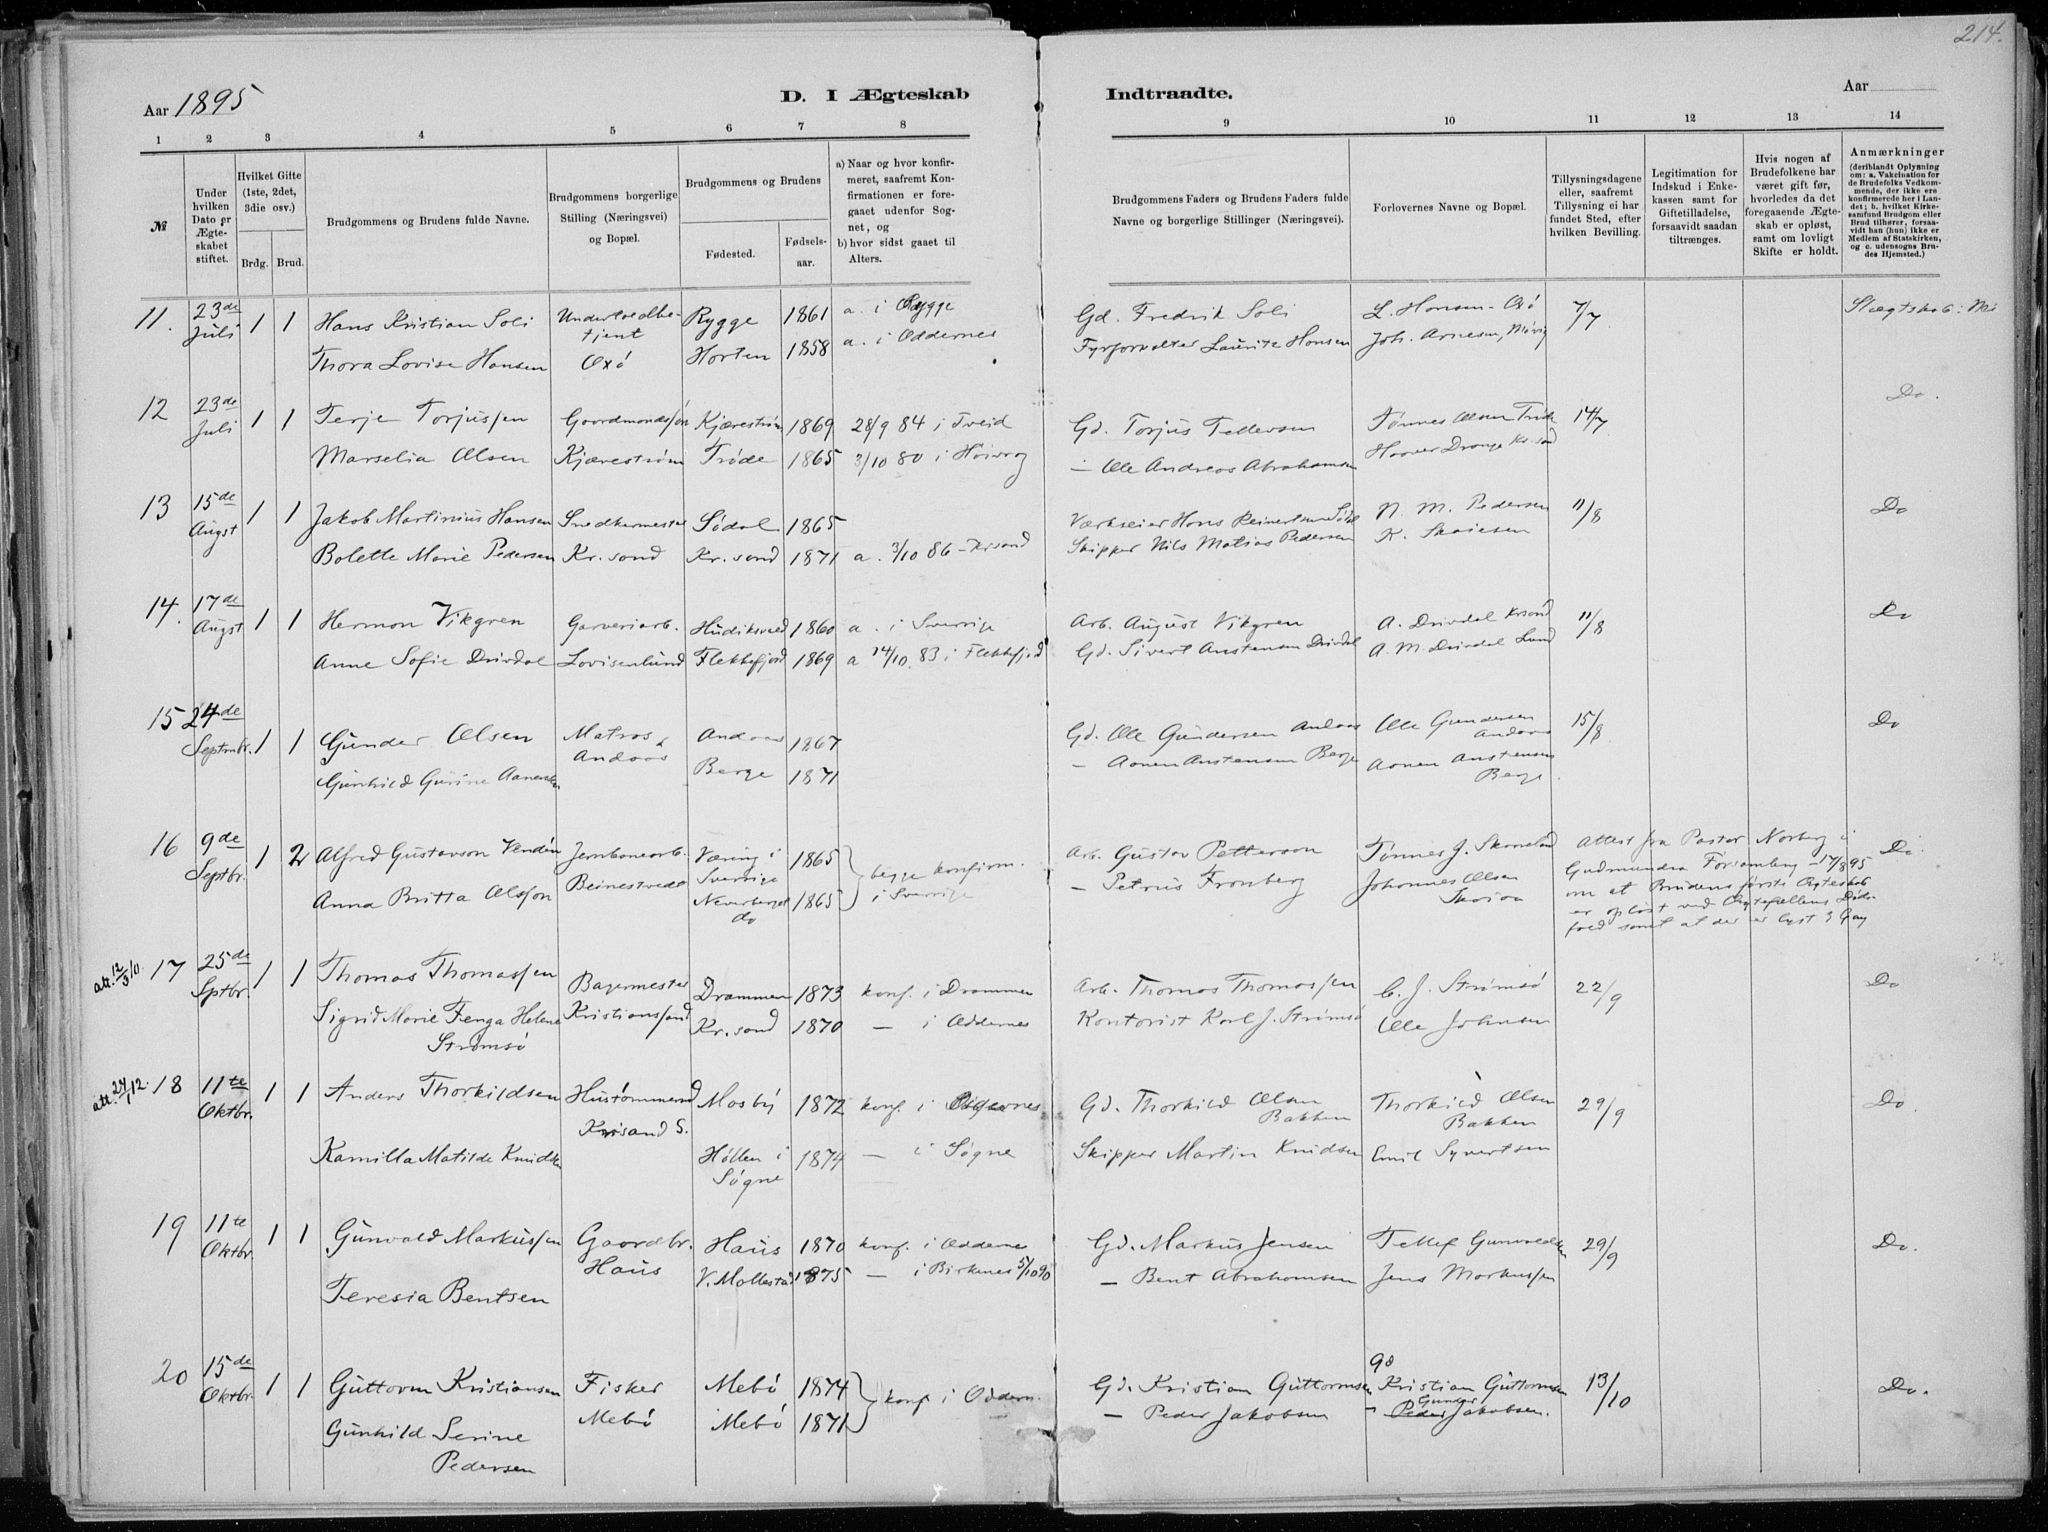 214.
Aar 1895
D. I Ægteskab Indtraadte.
Aar
1 2 3 4 5 6 7 8 9 10 11 12 13 14
№
Under hvilken Dato er Ægteskabet stiftet.
Hvilket Gifte (1ste, 2det, 3die osv.)
Brdg. Brud.
Brudgommens og Brudens fulde Navne.
Brudgommens borgerlige Stilling (Næringsvei) og Bopæl.
Brudgommens og Brudens
Fødested. Fødselsaar.
a) Naar og hvor konfirmeret, saafremt Konfirmationen er foregaaet udenfor Sognet, og
b) hvor sidst gaaet til Alters.
Brudgommens Faders og Brudens Faders fulde Navne og borgerlige Stillinger (Næringsvei).
Forlovernes Navne og Bopæl.
Tillysningsdagene eller, saafremt Tillysning ei har fundet Sted, efter hvilken Bevilling.
Legitimation for Indskud i Enkekassen samt for Giftetilladelse, forsaavidt saadan tiltrænges.
Hvis nogen af Brudefolkene har været gift før, hvorledes da det foregaaende Ægteskab er opløst, samt om lovligt Skifte er holdt.
Anmærkninger
(deriblandt Oplysning om: a. Vakcination for de Brudefolks Vedkommende, der ikke ere konfirmerede her i Landet; b. hvilket Kirkesamfund Brudgom eller Brud tilhører, forsaavidt han (hun) ikke er Medlem af Statskirken, og c. udensogns Brudes Hjemsted.)
11. 23de Juli 1 1 Hans Kristian Soli Undertoldbetjent Rygge 1861 a. i Rygge Gd. Fredrik Soli L. Hansen - Oxö 7/7 Slægtskab:
Thora Lovise Hansen Oxö Horten 1858 a. i Oddernes Fyrforvalter Lauritz Hansen Joh. Arnesen,
12 23de Juli 1 1 Terje Torjussen Gaardmandssøn Kjærestrøm 1869 28/9 84 i Tveid Gd. Torjus Tellefsen Tønnes Olsen 14/7 Do.
Marselia Olsen Kjærestrøm Trøde 1865 3/10 80 i Høivåg — Ole Andreas Abrahamsen Kr.sand
13 15de Augst 1 1 Jakob Martinius Hansen Snedkermester Sødal 1865 Værkseier Hans Reinertsen Sødal N. M. Pedersen 11/8 Do
Bolette Marie Pedersen Kr.sand Kr.sand 1871 a. 3/10 86 - Krsand Skipper Nils Matias Pedersen K.
14. 17de Augst 1 1 Herman Vikgren Garveriarb. Hudiksvald 1860 a. i Sverrige Arb. August Vikgren A. Drivdal Krsand 11/8 Do
Anne Sofie Drivdal Lovisenlund Flekkefjord 1869 a 14/10. 83 i Flekkefjord Gd. Sivert Anstensen Drivdal A. M. Drivdal Lund
15 24de Septmbr. 1 1 Gunder Olsen Matros Andaas 1867 Gd. Ole Gundersen Andaas Ole Gundersen Andaas 15/8 Do
Gunhild Gurine Aanensen Andaas Berge 1871 — Aanen Anstensen Berge Aanen Anstensen Berge.
16 9de Septbr. 1 2 Alfred Gustavson Vendén Jernbanearb. Væring i Sverrige 1865 begge konfirm. i Sverrige Arb. Gustav Petterson Tønnes J. Skomeland Attest fra Pastor Norberg i Do.
Anna Britta Olsson Beinestvedt do 1865 — Petrus Fronberg Johannes Olsen Gudmundra Församling 17/8 95
om at Brudens første Ægteskab
er opløst ved Ægtefællens Døds-
fald samt at der er lyst 3 Gang
att. 12/3 10. 17 25de Sptbr. 1 1 Thomas Thomassen Bagermester Drammen 1873 konf. i Drammen Arb. Thomas Thomassen C. J. Strømsö 22/9 Do
Sigrid Marie Fenga Helene Strømsö Kristianssand Kr.sand 1870 — i Oddernes Kontorist Karl J. Strømsö Ole Johnsen
att. 24/1 12. 18 11te Oktbr. 1 1 Anders Thorkildsen Hustømmermand Mosby 1872 konf. i Oddernes Gd. Thorkild Olsen Bakken Thorkild Olsen Bakken 29/9 Do.
Kamilla Matilde Knudsen Krisand S. Høllen i Søgne 1874 — i Søgne Skipper Martin Knudsen Emil Syvertsen
19 11te Oktbr. 1 1 Gunvald Markussen Gaardbr. Haus 1870 konf. i Oddernes Gd. Markus Jensen Tellef Gunvaldsen 29/9 Do.
Teresia Bentsen Haus V. Mollestad 1875 — i Birkenes 5/10 90 — Bent Abrahamsen Jens Markussen
20 15de Oktbr. 1 1 Guttorm Kristiansen Fisker Mebö 1874 konf i Oddern. Gd. Kristian Guttormsen Gd Kristian Guttormsen 13/10 Do.
Gunhild Serine Pedersen Mebö Mebö 1871 — Peder Jakobsen — Peder Gunder Jakobsen.